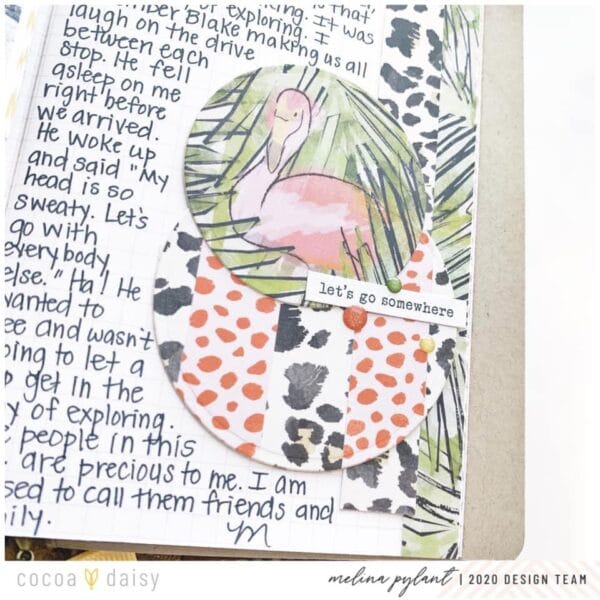 is that"
king. It was
ember Blake making us all
of exploring. I
laugh on the drive
between each
stop. He fell
asleep on me
right before
we arrived.
He woke up
and said "My
head is so
sweaty. Let's
go with
everybody
else." Ha! He
wanted to
ee and wasn't
oing to let a
p get in the
y of exploring.
people in this
are precious to me. I am
sed to call them friends and
mily.
M
let's go somewhere
cocoa daisy
melina pylant | 2020 DESIGN TEAM